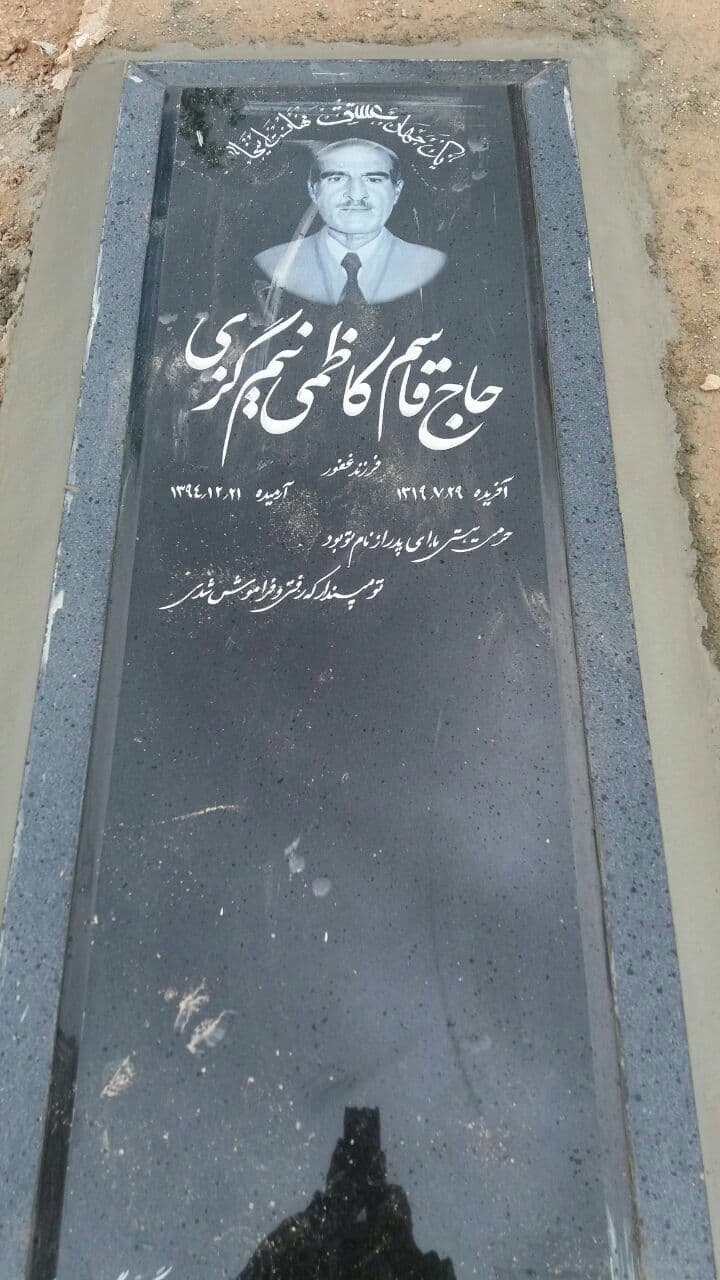 یک جهان عشق نهانست اینجا
حاج قاسم کاظمی نیم گزی
فرزند غفور
آفریده ۱۳۱۹٫۷٫۲۹ آرمیده ۱۳۹۴٫۱۲٫۲۱
حرمت هستی ما ای پدر از نام تو بود
تو مپندار که رفتی و فراموش شدی